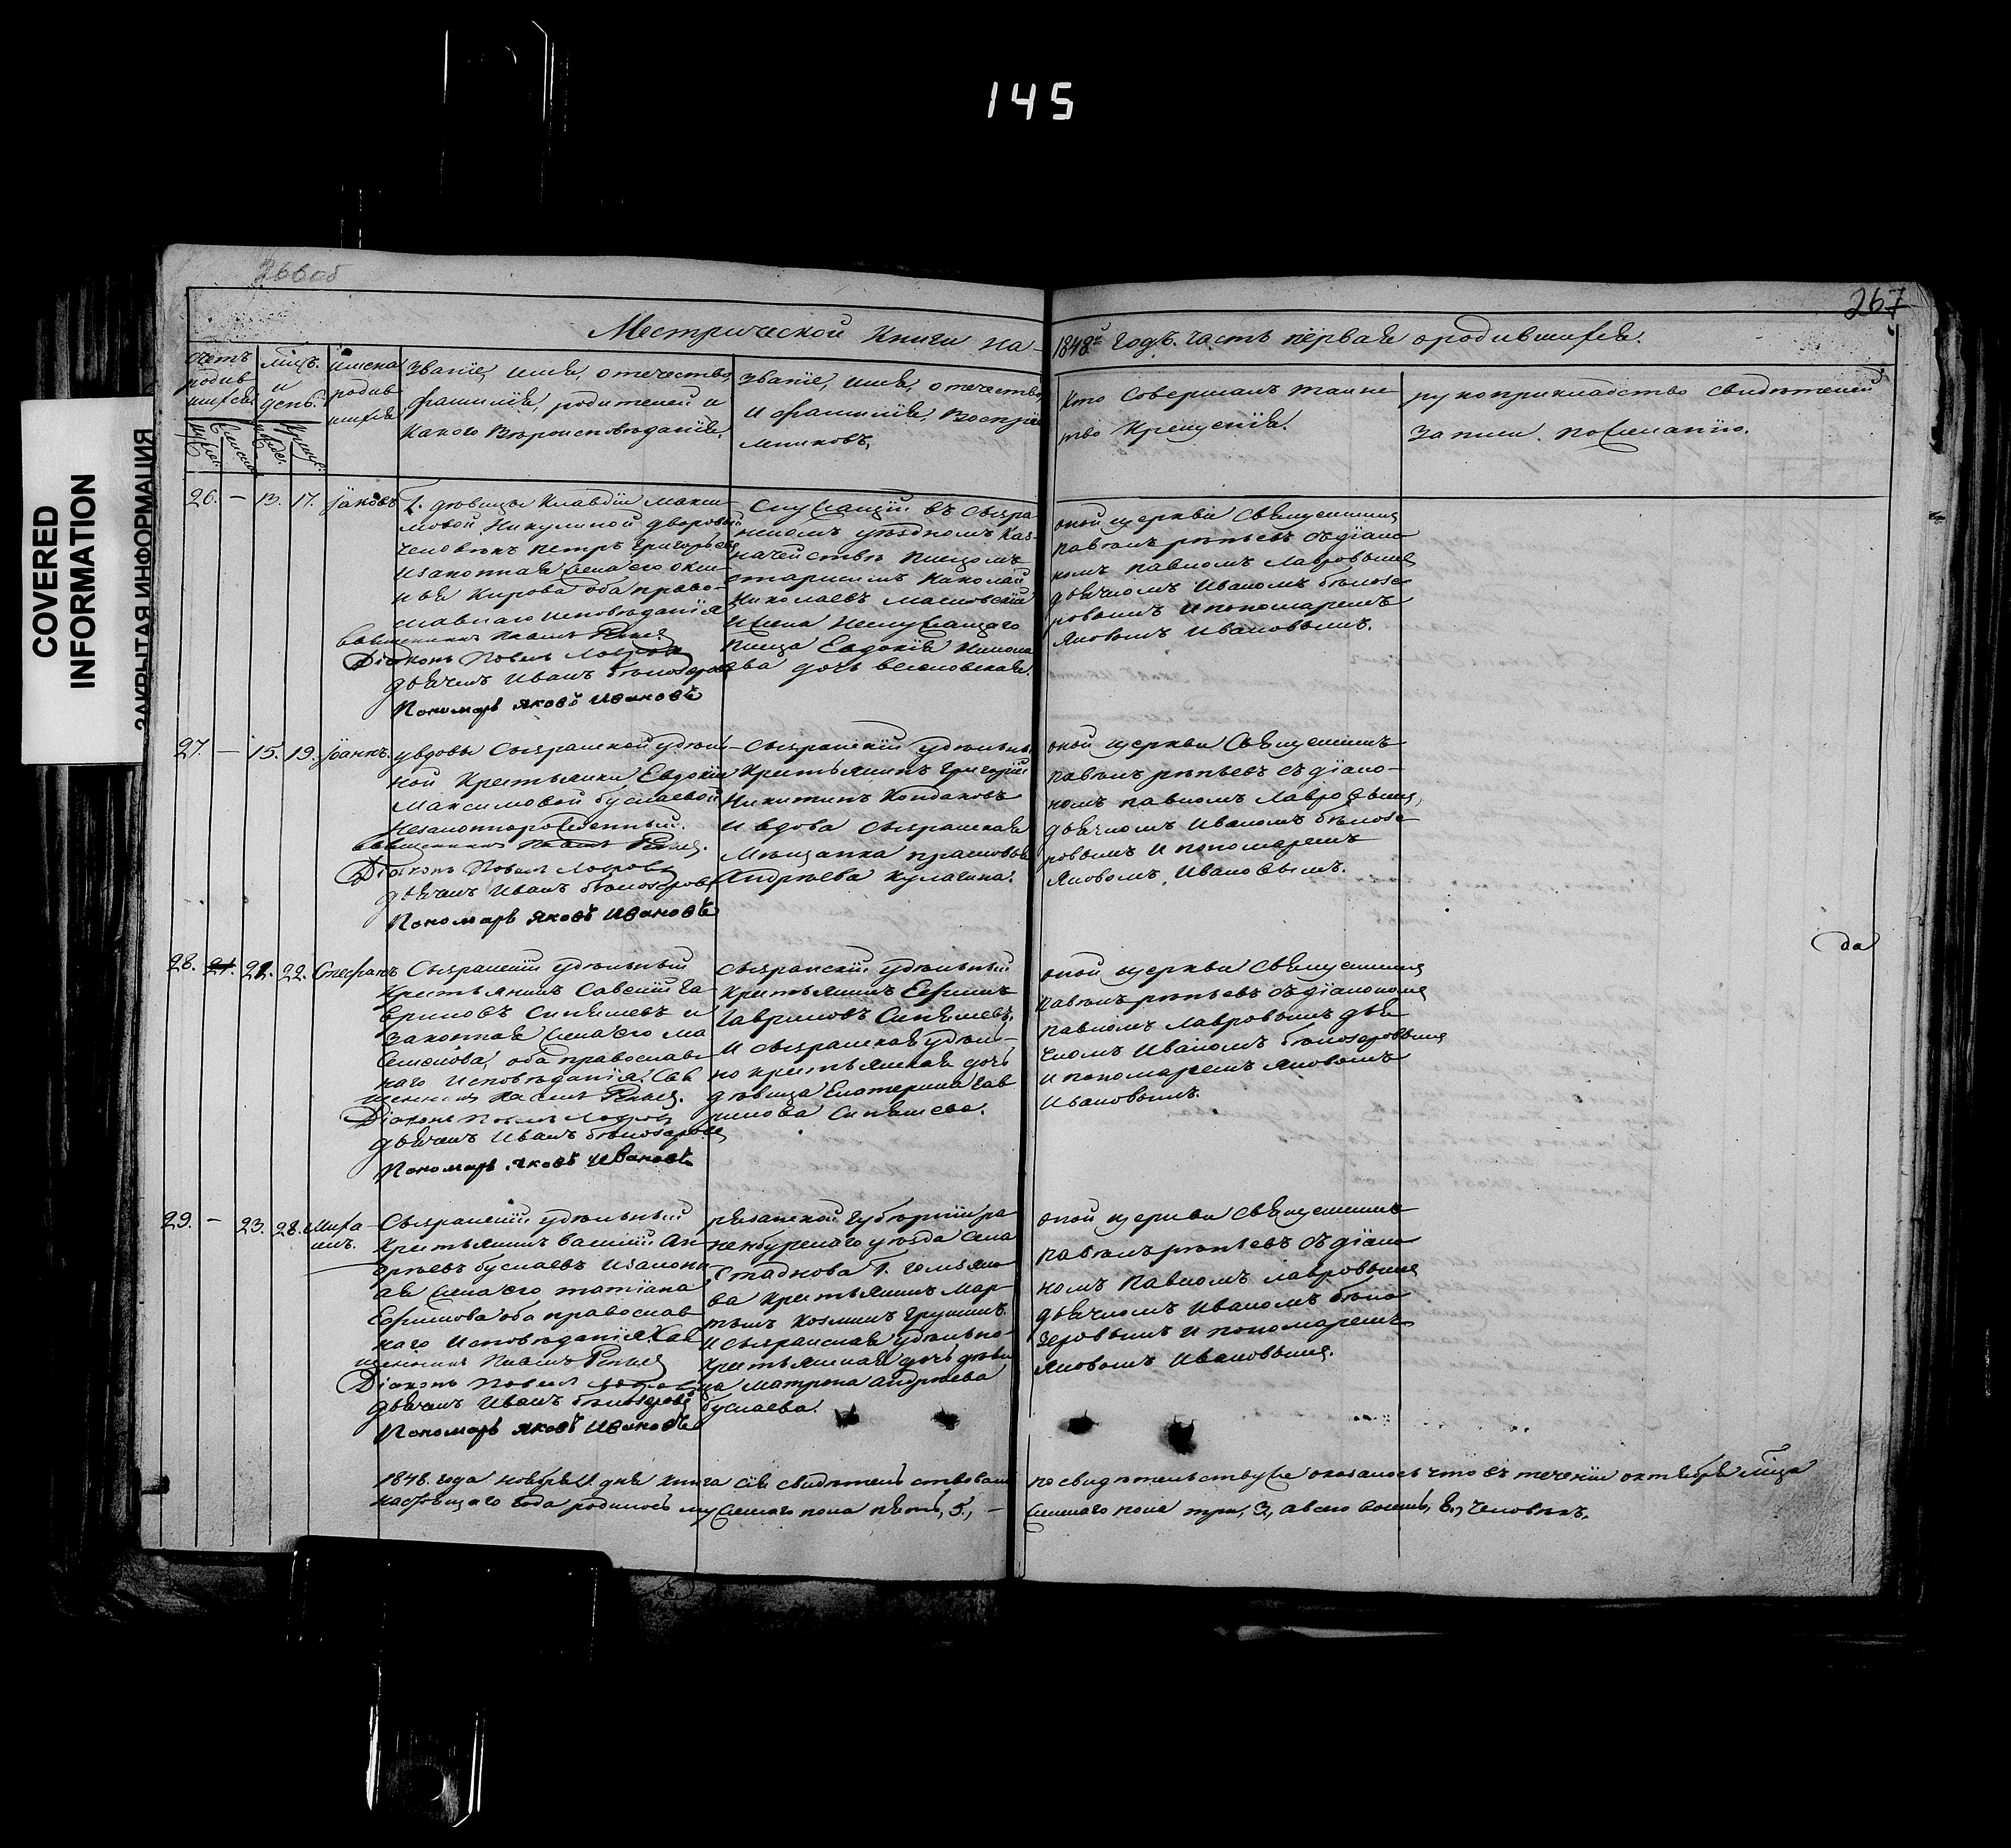 145
COVERED
INFORMATION
ЗАКРЫТАЯ ИНФОРМАЦИЯ
266об
267
Метрической книги на 1848й годъ. часть первая о родившихся.
счетъ родив шихся
мцъ. и день.
имена родив шихся
званіе, имя, отечество,
фамилія, родителей и
какого вѣроисповѣданія.
званіе, имя, отечество,
и фамилія, воспріе
мниковъ.
кто совершалъ таинс
тво крещенія.
рукоприкладство свидѣтелей
записи по желанію.
26. — 13. 17. Іаковъ
Г. дѣвицы Клавдіи Макси
мовой Никулиной дворовый
человѣкъ Петръ Григорьевъ
и законная жена его Окси
нья Кирова оба право
славнаго исповѣданія
Священникъ Павелъ
Діаконъ Павелъ Лавровъ
дьячекъ Иванъ Бѣлозеровъ
Пономарь Яковъ Ивановъ
Служащій въ Сызра
нскомъ уѣздномъ Каз
начействѣ писцомъ
старшимъ Николай
Николаевъ Масловскій
и жена неслужащаго
писца Евдокія Никола
ева дочь Веселовская.
оной церкви священникъ
Павелъ Рѣпьевъ съ діако
номъ Павломъ Лавровымъ
дьячкомъ Иваномъ Бѣлозе
ровымъ и пономаремъ
Яковомъ Ивановымъ.
27. — 15. 19. Іоаннъ.
у вдовы Сызранской удѣль
ной крестьянки Евдокіи
Максимовой Буслаевой
незаконнорожденный.
Священникъ Павелъ
Діаконъ Павелъ Лавровъ
дьячекъ Иванъ Бѣлозеровъ
Пономарь Яковъ Ивановъ
Сызранскій удѣльный
крестьянинъ Григорій
Никитинъ Кондаковъ
и вдова Сызранская
мѣщанка Прасковья
Андреева Кулагина.
оной церкви священникъ
Павелъ Рѣпьевъ съ діако
номъ Павломъ Лавровымъ,
дьячкомъ Иваномъ Бѣлозе
ровымъ и пономаремъ
Яковомъ Ивановымъ.
да
28. 21. 22. Стефанъ
Сызранскій удѣльный
крестьянинъ Савелій Га
вриловъ Синяшевъ и
законная жена его Ма
Семенова, оба православ
наго исповѣданія. Свя
щенникъ Павелъ
Діаконъ Павелъ Лавровъ
дьячекъ Иванъ Бѣлозеровъ
Пономарь Яковъ Ивановъ
Сызранскій удѣльный
крестьянинъ Ефимъ
Гавриловъ Синяшевъ,
и Сызранская удѣль
но крестьянская дочь
дѣвица Екатерина Гав
рилова Синяшева.
оной церкви священникъ
Павелъ Рѣпьевъ съ діакономъ
Павломъ Лавровымъ дья
чкомъ Иваномъ Бѣлозеровымъ
и пономаремъ Яковомъ
Ивановымъ.
29. — 23. 28. Миха
илъ.
Сызранскій удѣльный
крестьянинъ Василій Ан
дреевъ Буслаевъ и законн
ая жена его Татіана
Ефимова оба православ
наго исповѣданія Свя
щенникъ Павелъ
Діаконъ Павелъ Лавровъ
дьячекъ Иванъ Бѣлозеровъ
Пономарь Яковъ Ивановъ
Рязанской губерніи Ра
ненбургскаго уѣзда села
крестьянинъ Мар
тынъ Козминъ Грушинъ.
и Сызранская удѣльно
крестьянская дочь дѣви
ца Матрона Андреева
Буслаева.
оной церкви священникъ
Павелъ Рѣпьевъ съ діако
номъ Павломъ Лавровымъ
дьячкомъ Иваномъ Бѣло
зеровымъ и пономаремъ
Яковомъ Ивановымъ.
1848. года ноября дня книга сія свидѣтельствована по свидѣтельству же оказалось что въ теченіи октября мца
настоящаго года родилось мужескаго пола пять, 5, — женскаго пола три, 3, а всего восемь, 8, человѣкъ.